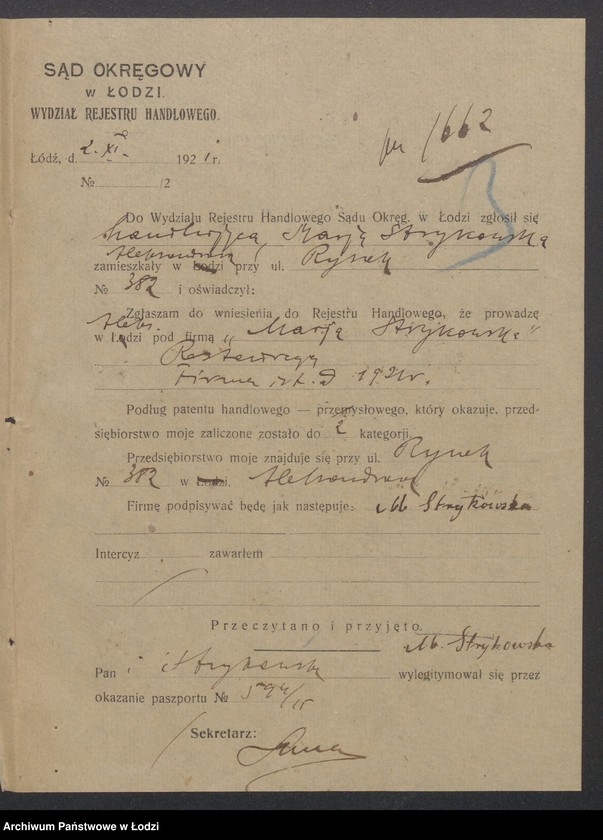 SĄD OKRĘGOWY
w ŁODZI.
WYDZIAŁ REJESTRU HANDLOWEGO.
Łódź, d. 2. XI. 1921 r.
№ /2
1662
3
Do Wydziału Rejestru Handlowego Sądu Okręg. w Łodzi zgłosił się
handlująca Marja Strykowska
zamieszkały w Łodzi Aleksandrow przy ul. Rynek
№ 382 i oświadczył:
Zgłaszam do wniesienia do Rejestru Handlowego, że prowadzę
w Łodzi Aleks. pod firmą „Marja Strykowska"
Restauracja
Firma ist. d 1921 r.
Podług patentu handlowego — przemysłowego, który okazuje, przed-
siębiorstwo moje zaliczone zostało do 2 kategorji.
Przedsiębiorstwo moje znajduje się przy ul. Rynek
№ 382 w Łodzi. Aleksandrow
Firmę podpisywać będę jak następuje: M Strykowska
Intercyz zawarłem
Przeczytano i przyjęto.
M. Strykowska
Pan i Strykowska wylegitymował się przez
okazanie paszportu №
Sekretarz:
Archiwum Państwowe w Łodzi